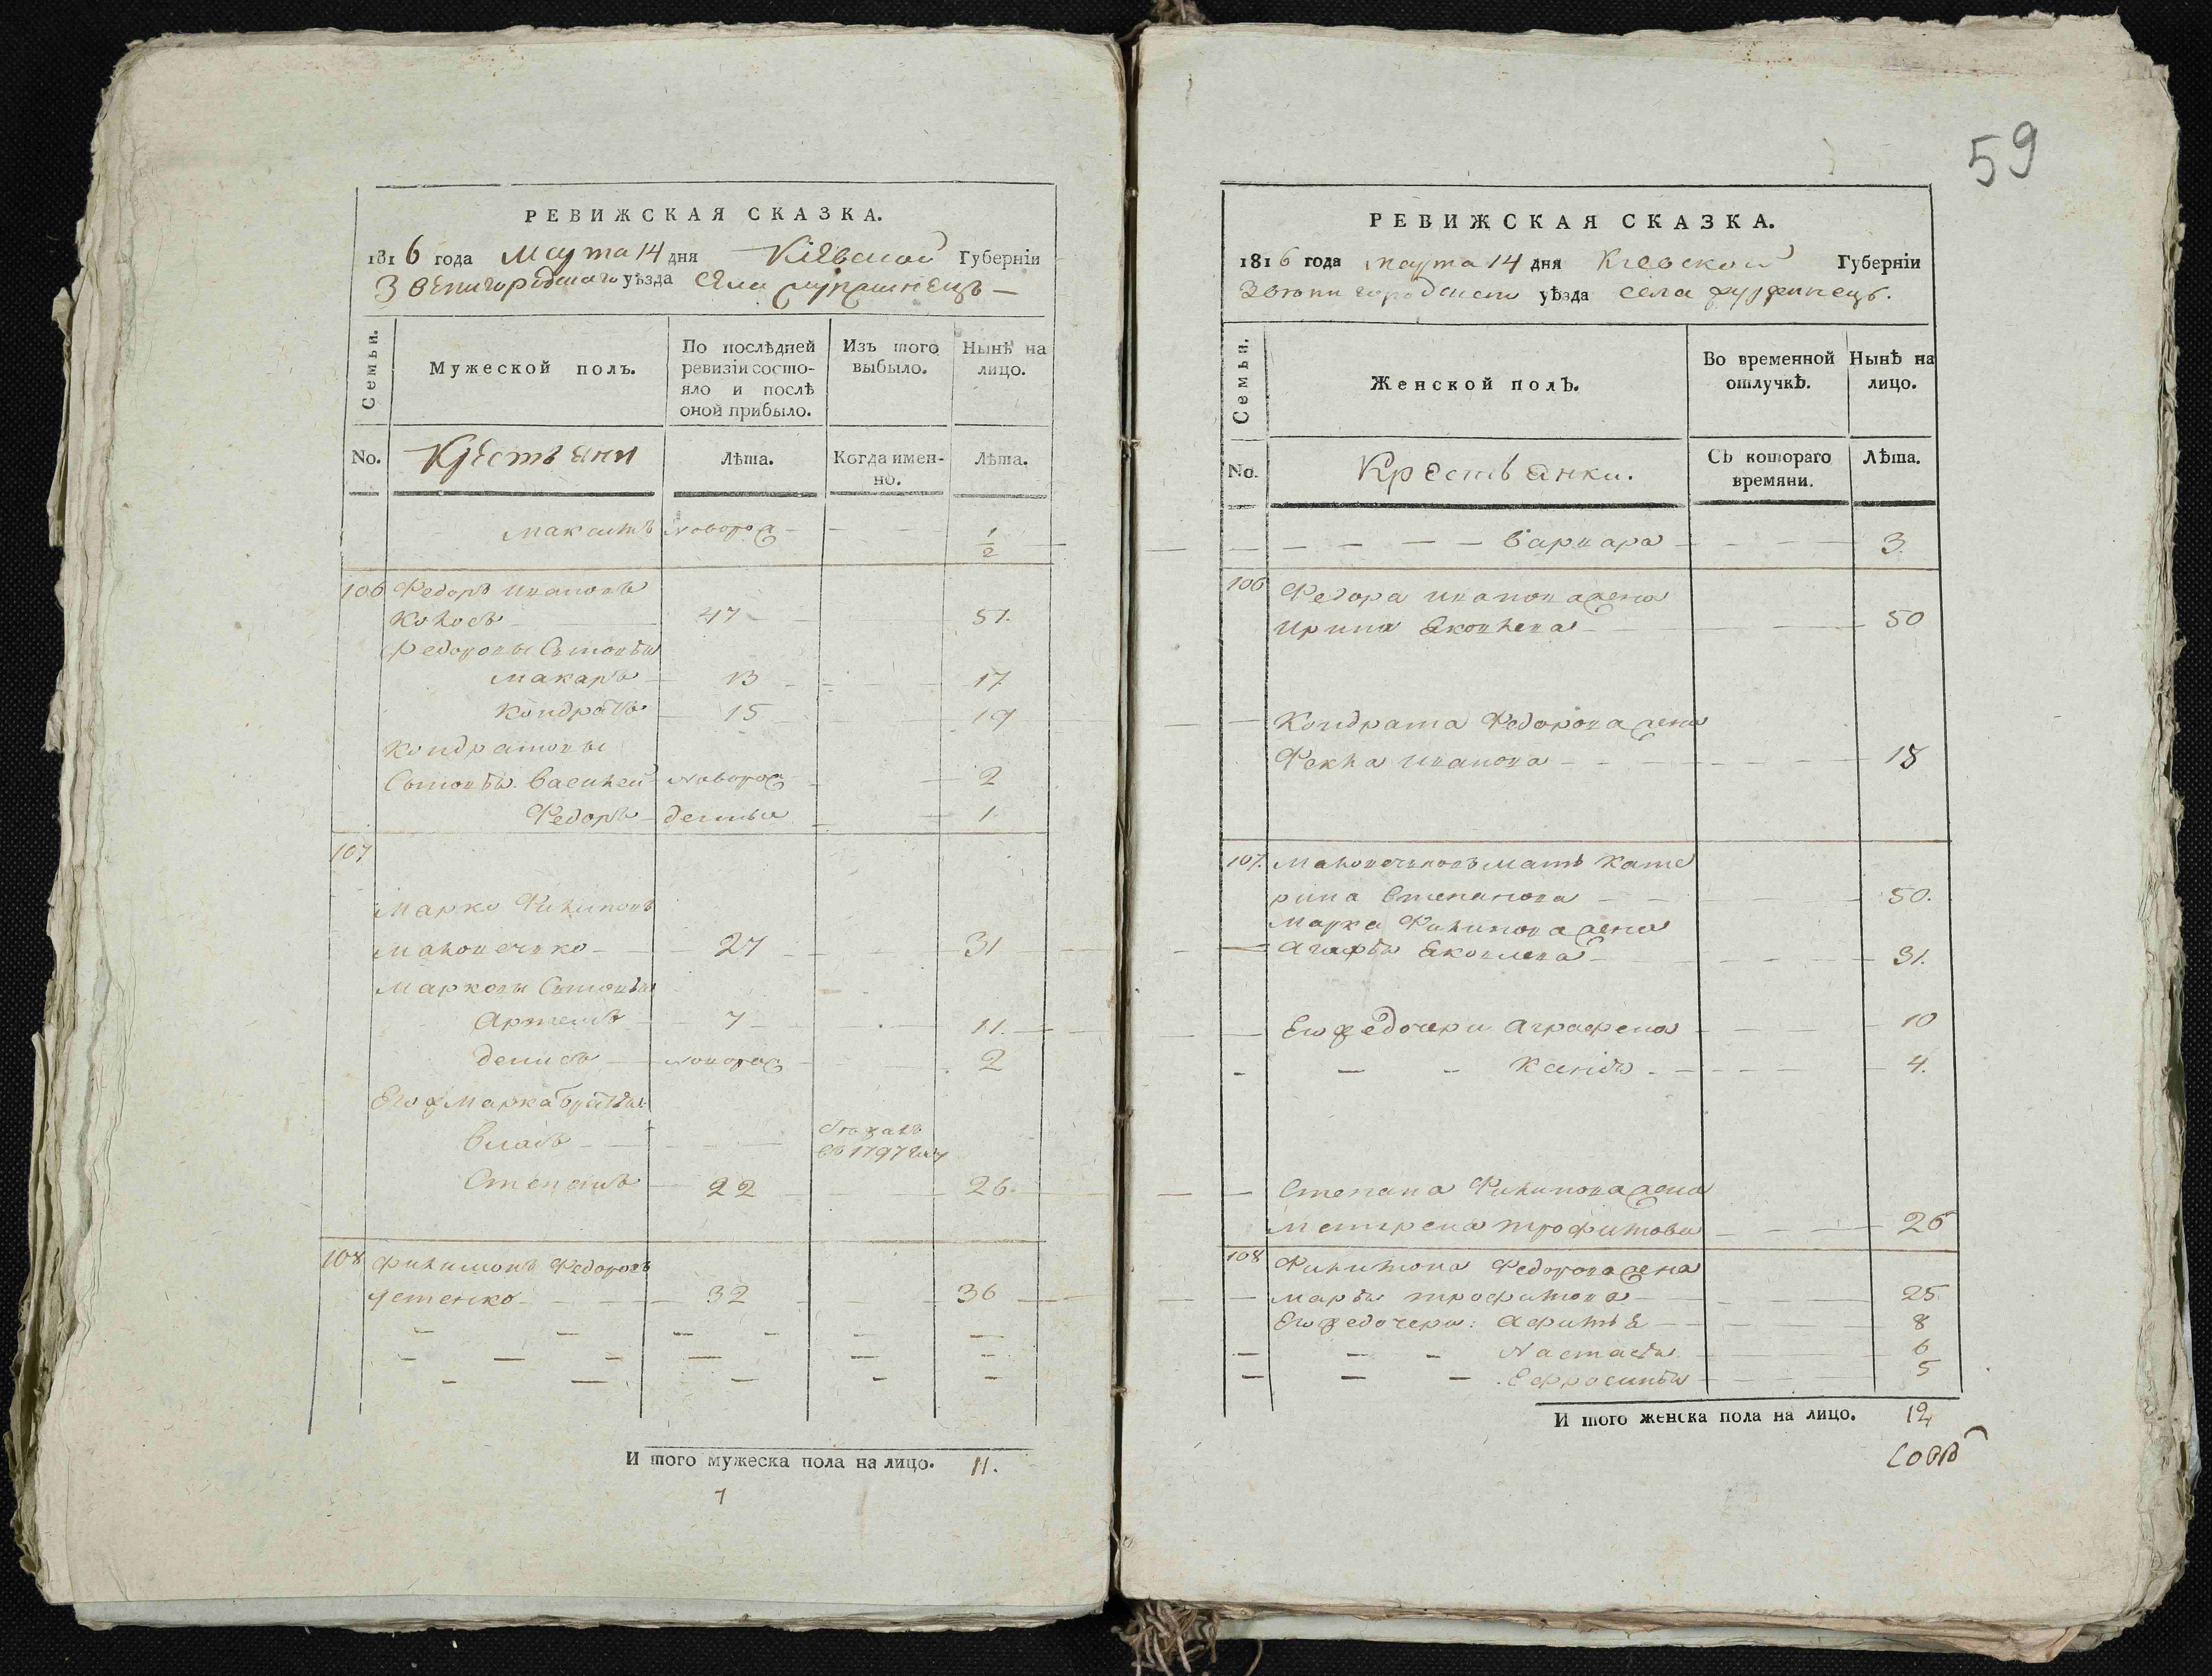 РЕВИЖСКАЯ СКАЗКА.
1816 года Марта 14 дня Кіевской Губерніи
Звенигородскаго уѣзда села
Семьи.
Мужеской полъ.
По послѣдней ревизіи состо-
яло и послѣ
оной прибыло.
Изъ того
выбыло.
Нынѣ на
лицо.
No. Крестьяни Лѣта. Когда имен-
но.
Лѣта.
Максимъ Новорож 1/2
106 Федоръ Ивановъ
47 51.
Федоровы Сыновья
Макаръ 13 17
Кондратъ 15 19
Кондратовы
Сыновья Василей Новорож 2
Федоръ денны 1
107
Марко Филиповъ
Маловечко 27 31
Марковы Сыновья
Артемъ 7 11.
Денисъ Новорож 2
Его ж Марка братья
Власъ бежалъ
въ 1797 году
Степанъ 22 26.
108 Филимонъ Федоровъ
32 36
И того мужеска пола на лицо. 11.
59
РЕВИЖСКАЯ СКАЗКА.
1816 года марта 14 дня Кіевской Губерніи
уѣзда села
Семьи.
Женской полЪ.
Во временной
отлучкѣ.
Нынѣ на
лицо.
No. Крестьянки.
Съ котораго
времяни.
Лѣта.
Варвара 3.
106 Федора Иванова жена
Ирина Яковлева 50
Кондрата Федорова жена
Фекла Иванова 18
107. мать Кате
рина Степанова 50.
Марка Филипова жена
Агафья Яковлева 31.
Его ж дочери Аграфена 10
4.
Степана Филипова жена
Матрена Трофимова 26
108 Филимона Федорова жена
Марья Трофимова 25
Его ж дочери: Афимья 8
Настасья 6
Ефросинья 5
И того женска пола на лицо. 12